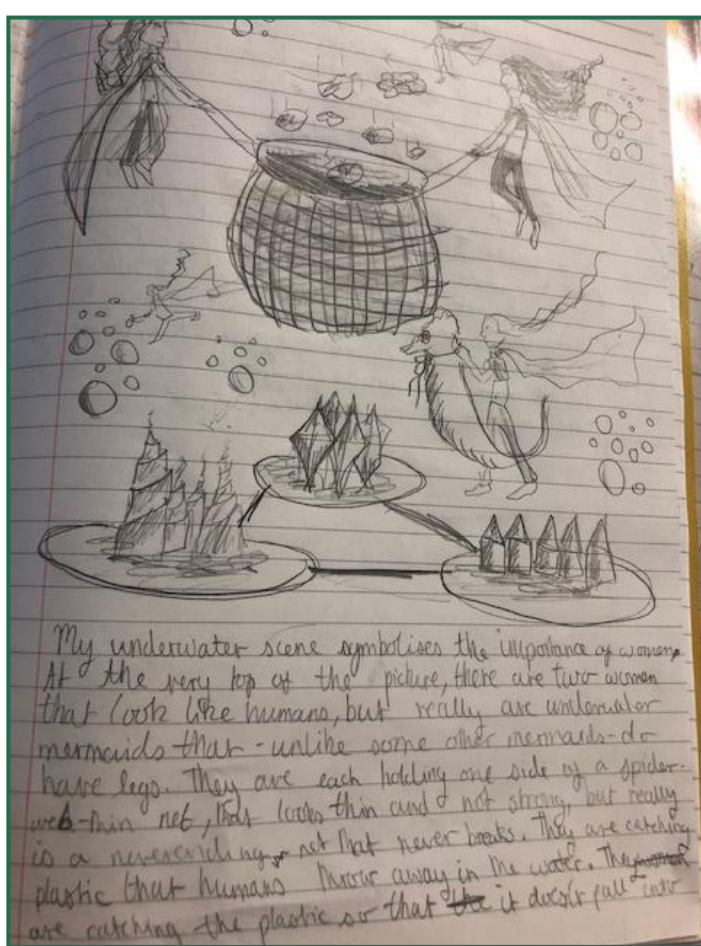 My underwater scene symbolises the importance of women.
At the very top of the picture, there are two women
that look like humans, but really are underwater
mermaids that - unlike some other mermaids - do
have legs. They are each holding one side of a spider-
web-thin net, that looks thin and not strong, but really
is a neverending net that never breaks. They are catching
plastic that humans throw away in the water. They
are catching the plastic so that it doesn't fall into